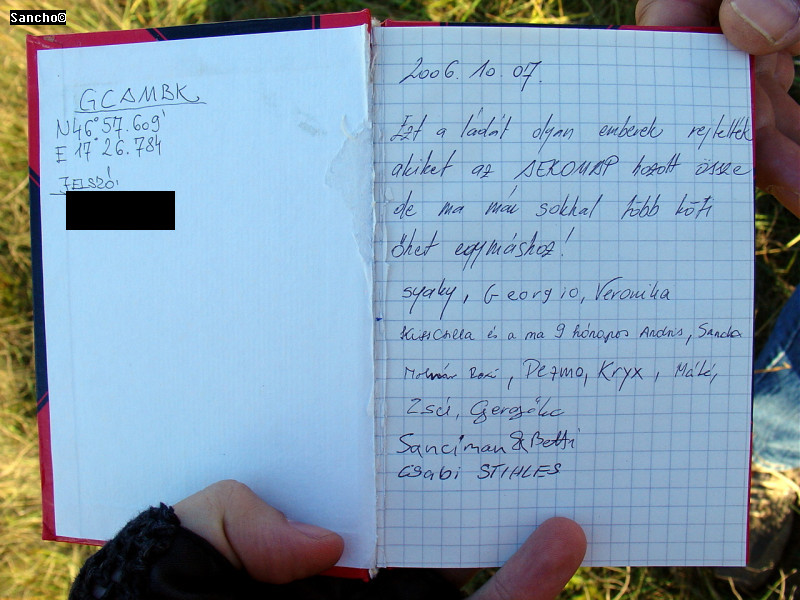 Sancho©
GCAMBK
N46° 57.609'
E 17° 26.784
JELSZÓ:
2006. 10. 07.
Ezt a ládát olyan emberek rejtették
akiket az AEKOMAP hozott össze
de ma már sokkal több köti
őket egymáshoz!
syaky, Georgio, Veronika
KissCsilla és a ma 9 hónapos András, Sancho
Molnár Roxi, Dezma, Kryx, Máté,
Zsci,
Sanciman & Betti
Csabi STIHLES